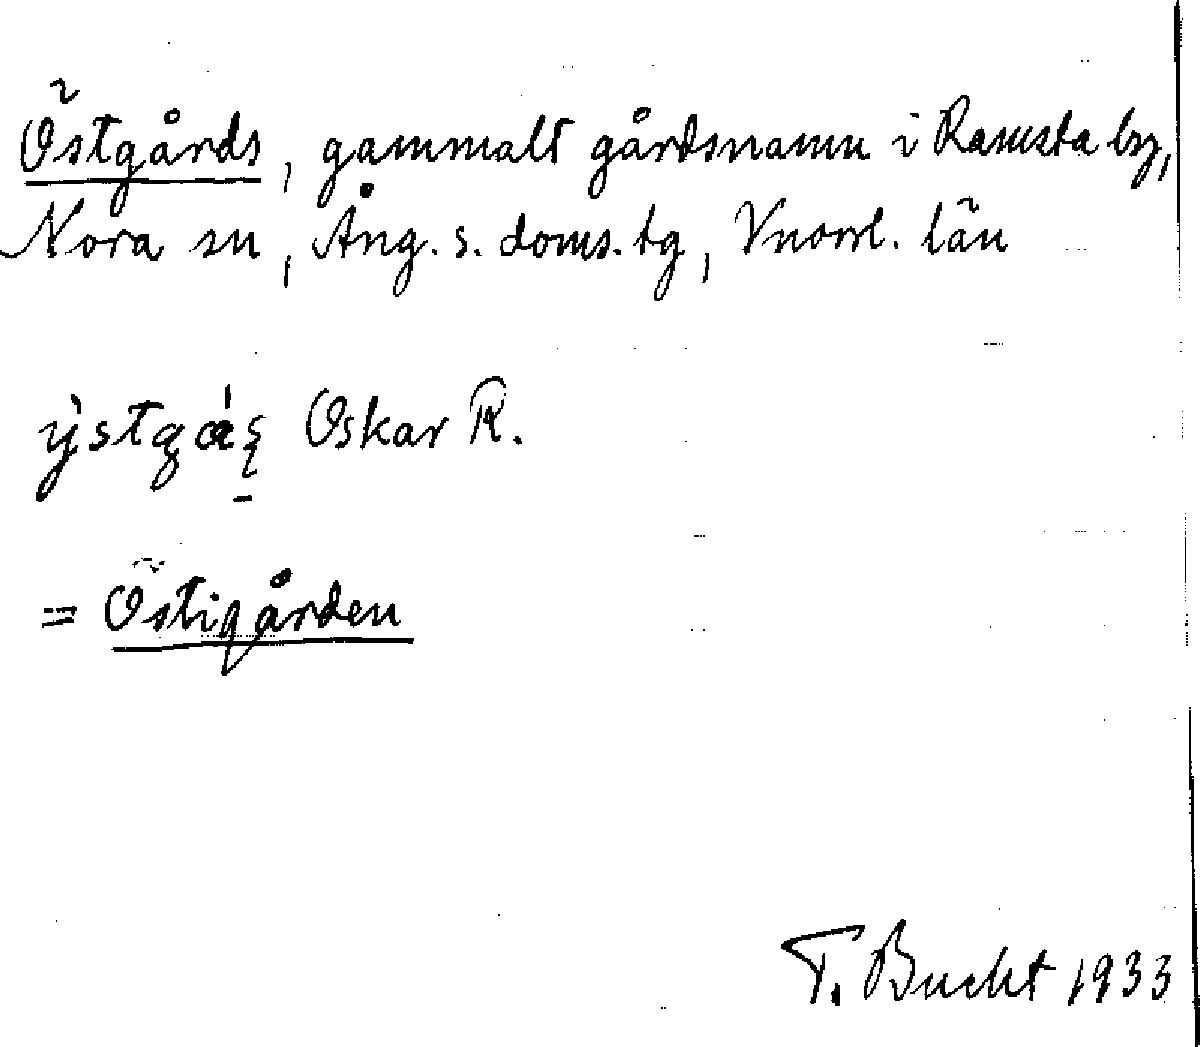 Östgårds, gammalt gårdsnamn i Ramsta by,
Nora sn, Ång. s. doms. tg, Vnorrl. län
Oskar R.
= Östigården
T. Bucht 1933